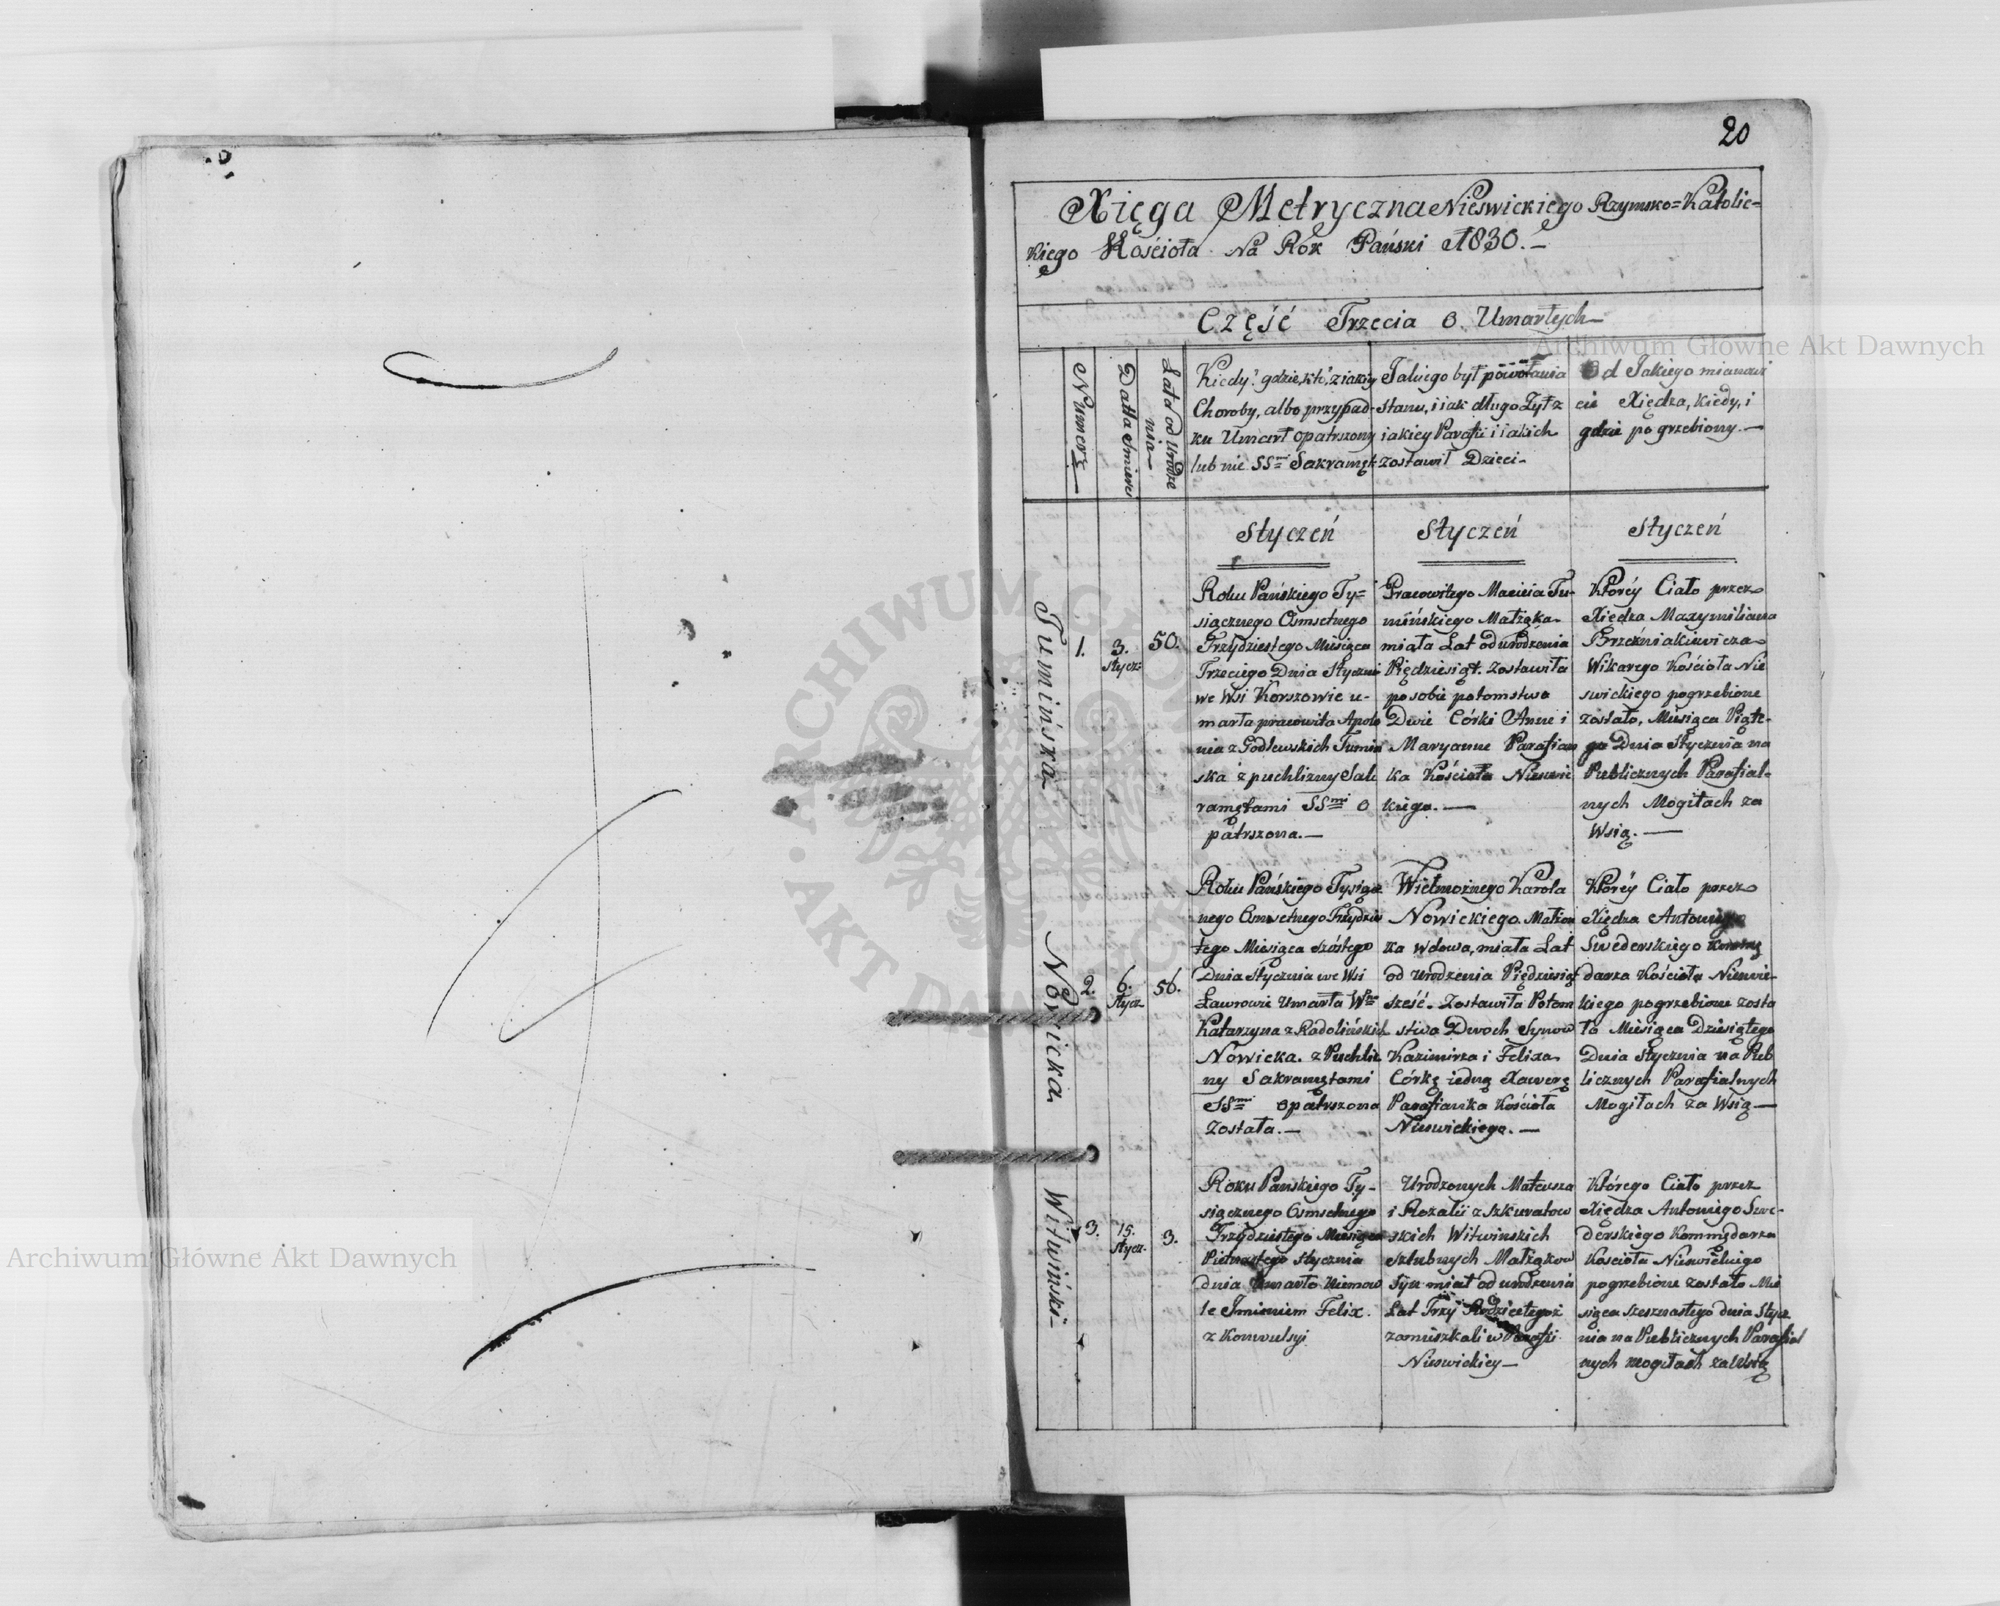 20
Xięga Metryczna Nieswickiego Rzymsko=Katolic=
kiego Kościoła Na Rok Pański 1830.—
Część Trzecia O Umarłych—
Numer
Datta Śmierci
Lata od Urodze
nia—
Kiedy? gdzie, kto, z iakiey
Choroby, albo przypad-
ku Umarł opatrszony
lub nie SS.mi Sakramęt
Jakiego był powołania
Stanu, i iak długo Żył z
iakiey Parafii i iakich
zostawił Dzieci—
Od Jakiego mianowi
cie Xiędza, kiedy, i
gdzie pogrzebiony.—
Styczeń
Styczeń
Styczeń
Tumińska
1.
3.
Stycz:
50.
Roku Pańskiego Ty=
siącznego Osmsetnego
Trzydziestego Miesiąca
Trzeciego Dnia Stycznia
we Wsi Korszowie u-
marła pracowita Apolo
nia z Godlewskich Tumin
ska z puchliny Sak
ramętami SS.mi o
patrszona.—
Pracowitego Macieia Tu-
mińskiego Małżąka
miała Lat od urodzenia
Pięдziesiąt. Zostawiła
po sobie potomstwa
Dwie Córki Anne i
Maryanne Parafian
ka Kościoła Nieswic
kiego.—
Którey Ciało przez
Xiędza Maxymiliana
Brzeźniakiewicza
Wikarego Kościoła Nie
swickiego pogrzebione
zostało, Miesiąca Piąte-
go Dnia Stycznia na
Publicznych Parafial-
nych Mogiłach za
Wsią.—
Nowicka
2.
6.
Stycz.
56.
Roku Pańskiego Tysiącz
nego Osmsetnego Trzydzies
tego Miesiąca Szóstego
Dnia Stycznia we Wsi
Ławrowie Umarła W.
Katarzyna z Radolińskich
Nowicka. z Puchli
ny Sakramętami
SS.mi opatrszona
Została.—
Wielmożnego Karola
Nowickiego Małżon
ka Wdowa, miała Lat
od Urodzenia Pięдziesiąt
sześć. Zostawiła Potom
stwa Dwoch Synow
Kazimirza i Felixa
Córkę iedną Xawerę
Parafianka Kościoła
Nieswickiego.—
Którey Ciało przez
Xiędza Antoniego
Swederskiego Kommę
darza Kościoła Nieswic-
kiego pogrzebione zosta
ło Miesiąca Dziesiątego
Dnia Stycznia na Pub
licznych Parafialnych
Mogiłach za Wsią—
Witwiński
3.
15.
Stycz.
3.
Roku Pańskiego Ty-
siącznego Osmsetnego
Trzydziestego Miesiąca
Pietnastego Stycznia
dnia Umarło Niemow
le Imieniem Felix.
z Konwulsyi
Urodzonych Mateusza
i Rozalii z Szkuratow
skich Witwinskich
Szlubnych Małżąkow
Syn miał od urodzenia
Lat Trzy Rodzice tegoż
zamiszkali w Parafii
Nieswickiey—
Którego Ciało przez
Xiędza Antoniego Swe-
derskiego Kommędarza
Kościoła Nieswickiego
pogrzebione zostało Mie
siąca Szesnastego dnia Stycz
nia na Publicznych Parafial
nych mogiłach za Wsią
Archiwum Główne Akt Dawnych
Archiwum Główne Akt Dawnych
ARCHIWUM GŁÓWNE
AKT DAWNYCH